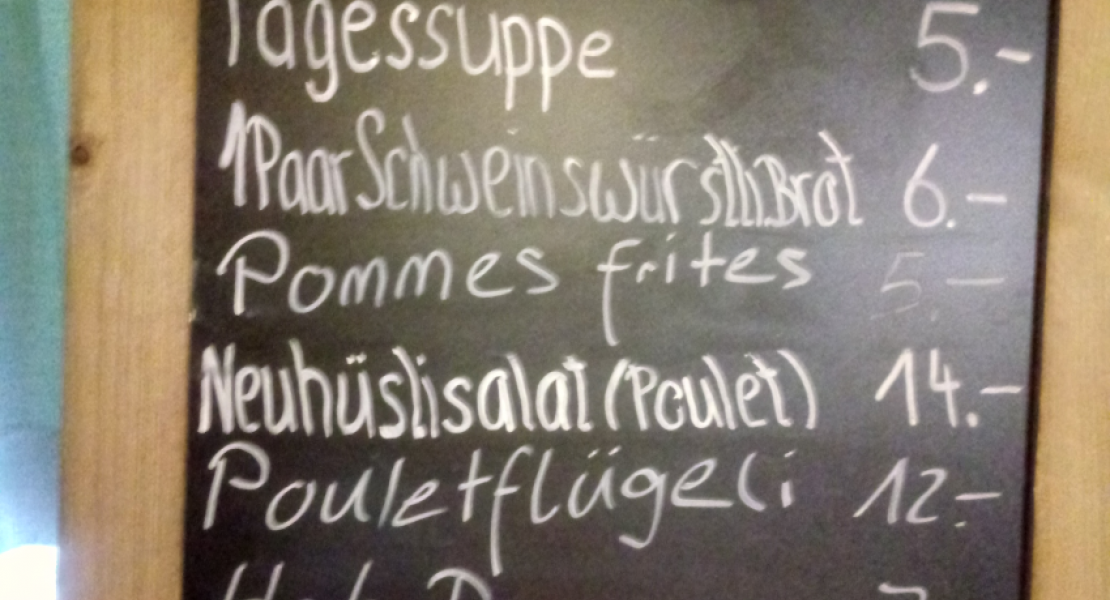 Tagessuppe 5.-
1 Paar Schweinswürstli.Brot 6.-
Pommes frites 5.-
Neuhüslisalat (Poulet) 14.-
Pouletflügeli 12.-